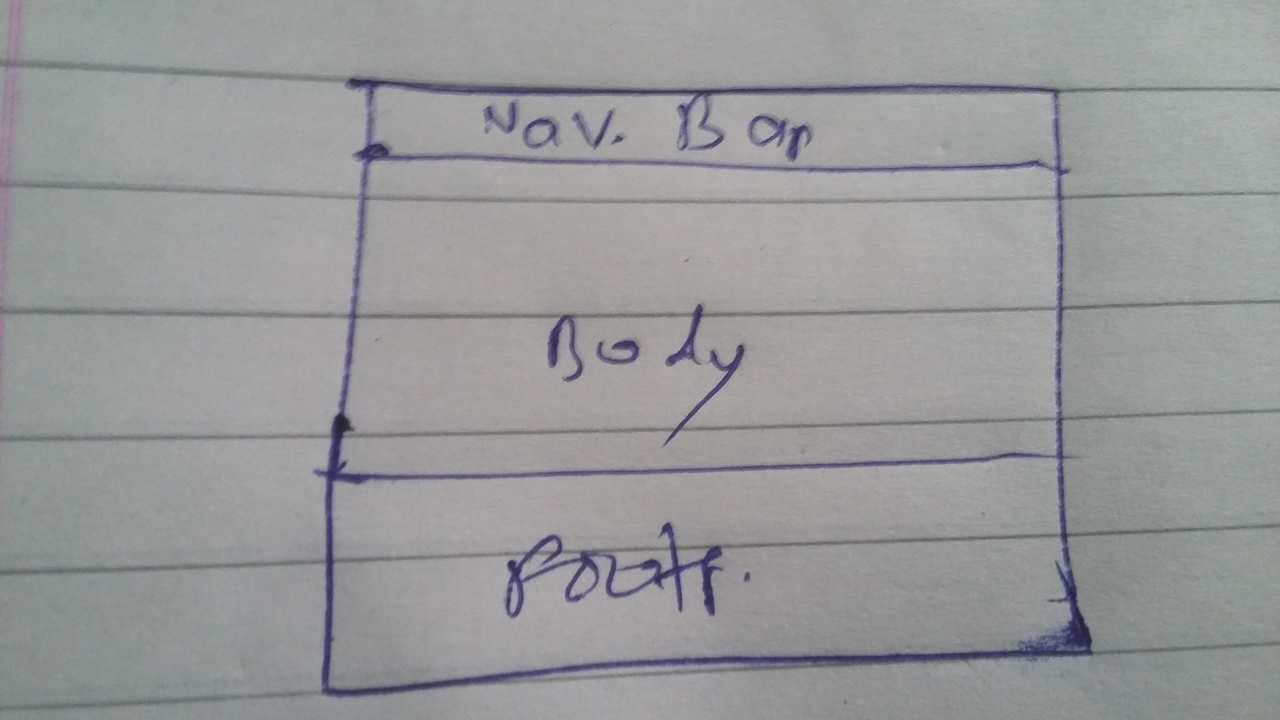 Nav. Bar
Body
Footr.